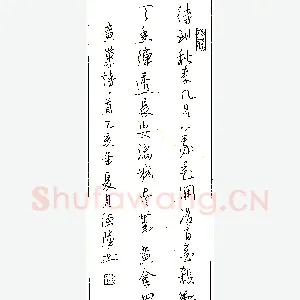 待到秋来九月八我花开后百花杀冲
天香阵透长安满城尽带黄金甲
黄巢诗一首乙亥年
Shufawang.CN